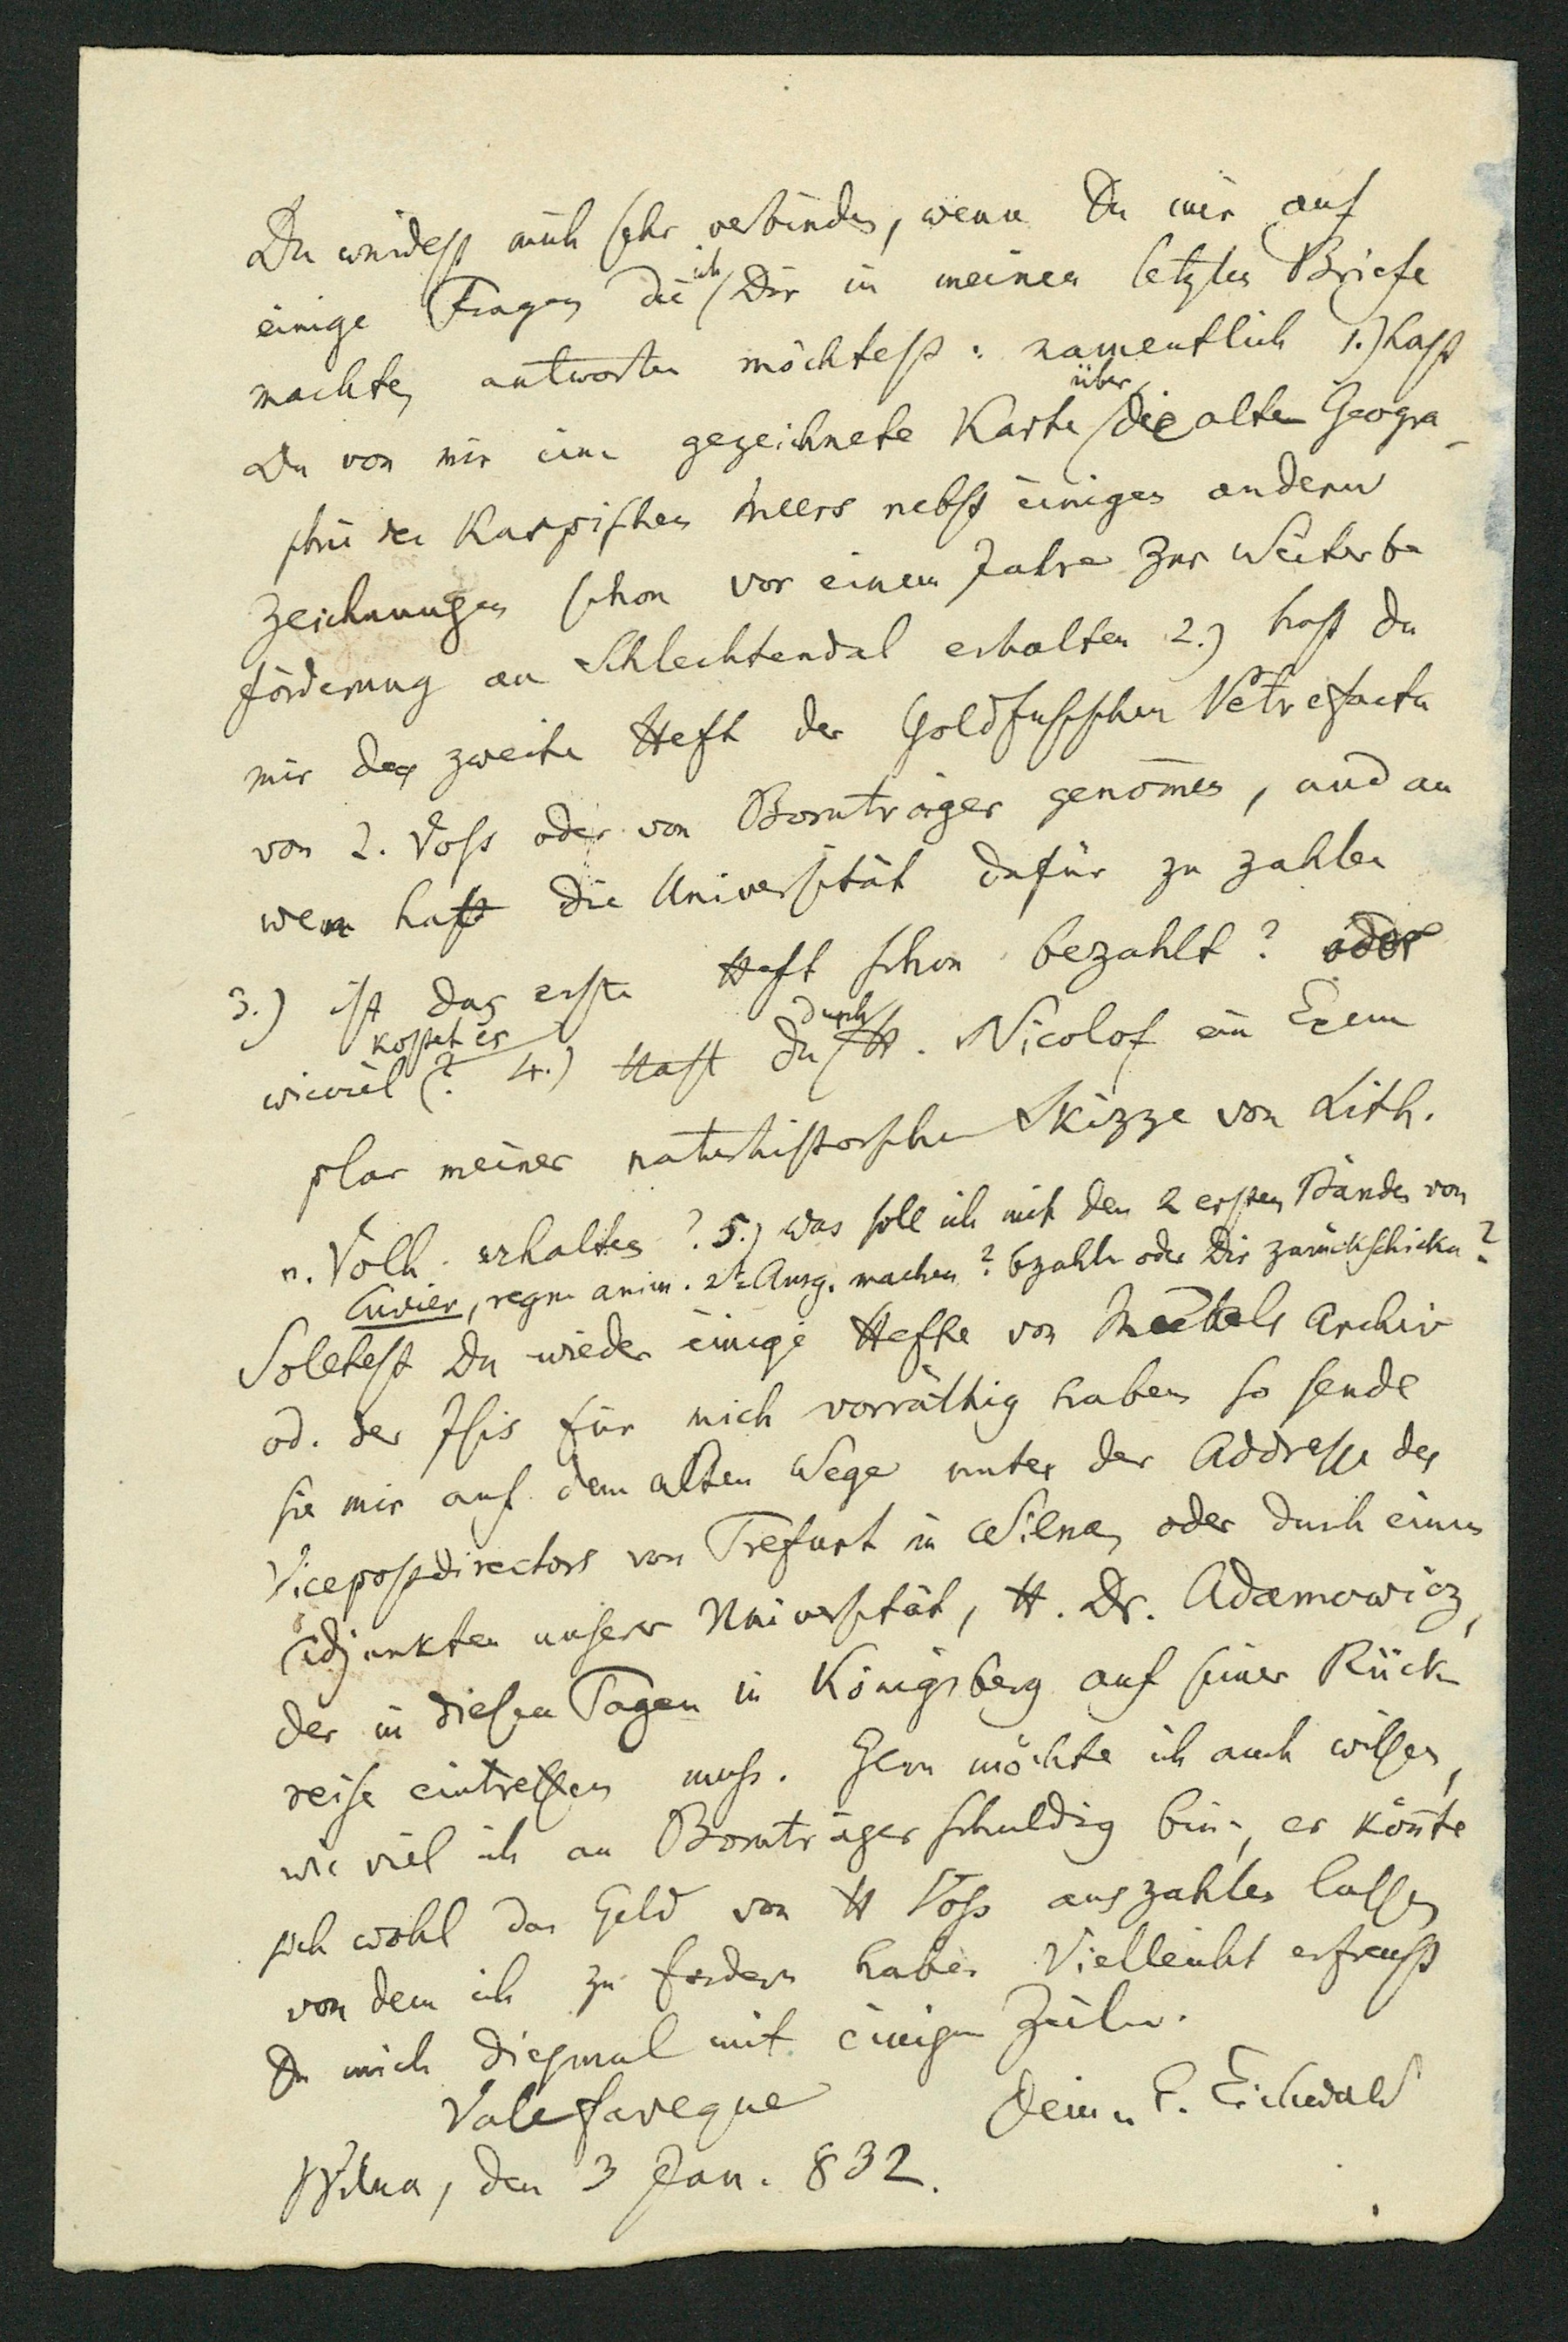 Du würdest mich sehr verbinden, wenn Du mir auf
einige Fragen die ich Dir in meinem letzten Briefe
machte, antworten möchtest: namentlich 1.) hast
Du von mir eine gezeichnete Karte über die alte Geogra-
phie des Kaspischen Meers nebst einigen andern
Zeichnungen schon vor einem Jahre zur Weiterbe
förderung an Schlechtendal erhalten 2.) hast du
mir das zweite Heft der Goldfussschen Petrefacta
von L. Voss oder von Bornträger genom̅en, und an
wen hat die Universität dafür zu zahlen
3.) ist das erste Heft schon bezahlt? oder
wieviel kostet es? 4.) Hast du durch H. Nicolof ein Exem
plar meiner naturhistorschen Skizze von Lith.
u. Volh. erhalten? 5.) Was soll ich mit den 2 ersten Bänden von
Cuvier, regne anim. 2te Ausg. machen? bezahlen oder Dir zurückschicken?
Soletest Du wieder einige Hefte von Meckels Archiv
od. der Isis für mich vorräthig haben so sende
sie mir auf dem alten Wege unter der Addresse des
Vicepostdirectors von Trefurt in Wilna, oder durch einen
Adjunkten unserer Universität, H. Dr. Adamowicz,
der in diesen Tagen in Königsberg auf seiner Rück
reise eintreffen muss. Gern möchte ich auch wissen,
wie viel ich an Bornträger schuldig bin, er kön̅te
sich wohl das Geld von H Voss auszahlen lassen
von dem ich zu fordern habe. Vielleicht erfreust
Du mich diesmal mit einigen Zeilen.
Vale faveque Dein E. Eichwald
Wilna, den 3 Jan. 832.